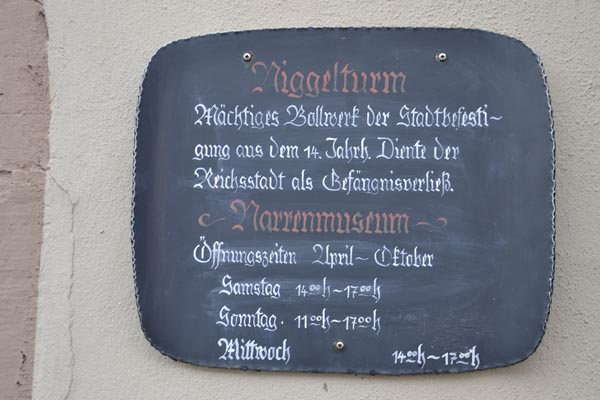 Niggelturm
Mächtiges Bollwerk der Stadtbefesti-
gung aus dem 14. Jahrh. Diente der
Reichsstadt als Gefängnisverließ.
~ Narrenmuseum ~
Öffnungszeiten April - Oktober
Samstag 14⁰⁰h - 17⁰⁰h
Sonntag. 11⁰⁰h - 17⁰⁰h
Mittwoch 14⁰⁰h - 17⁰⁰h